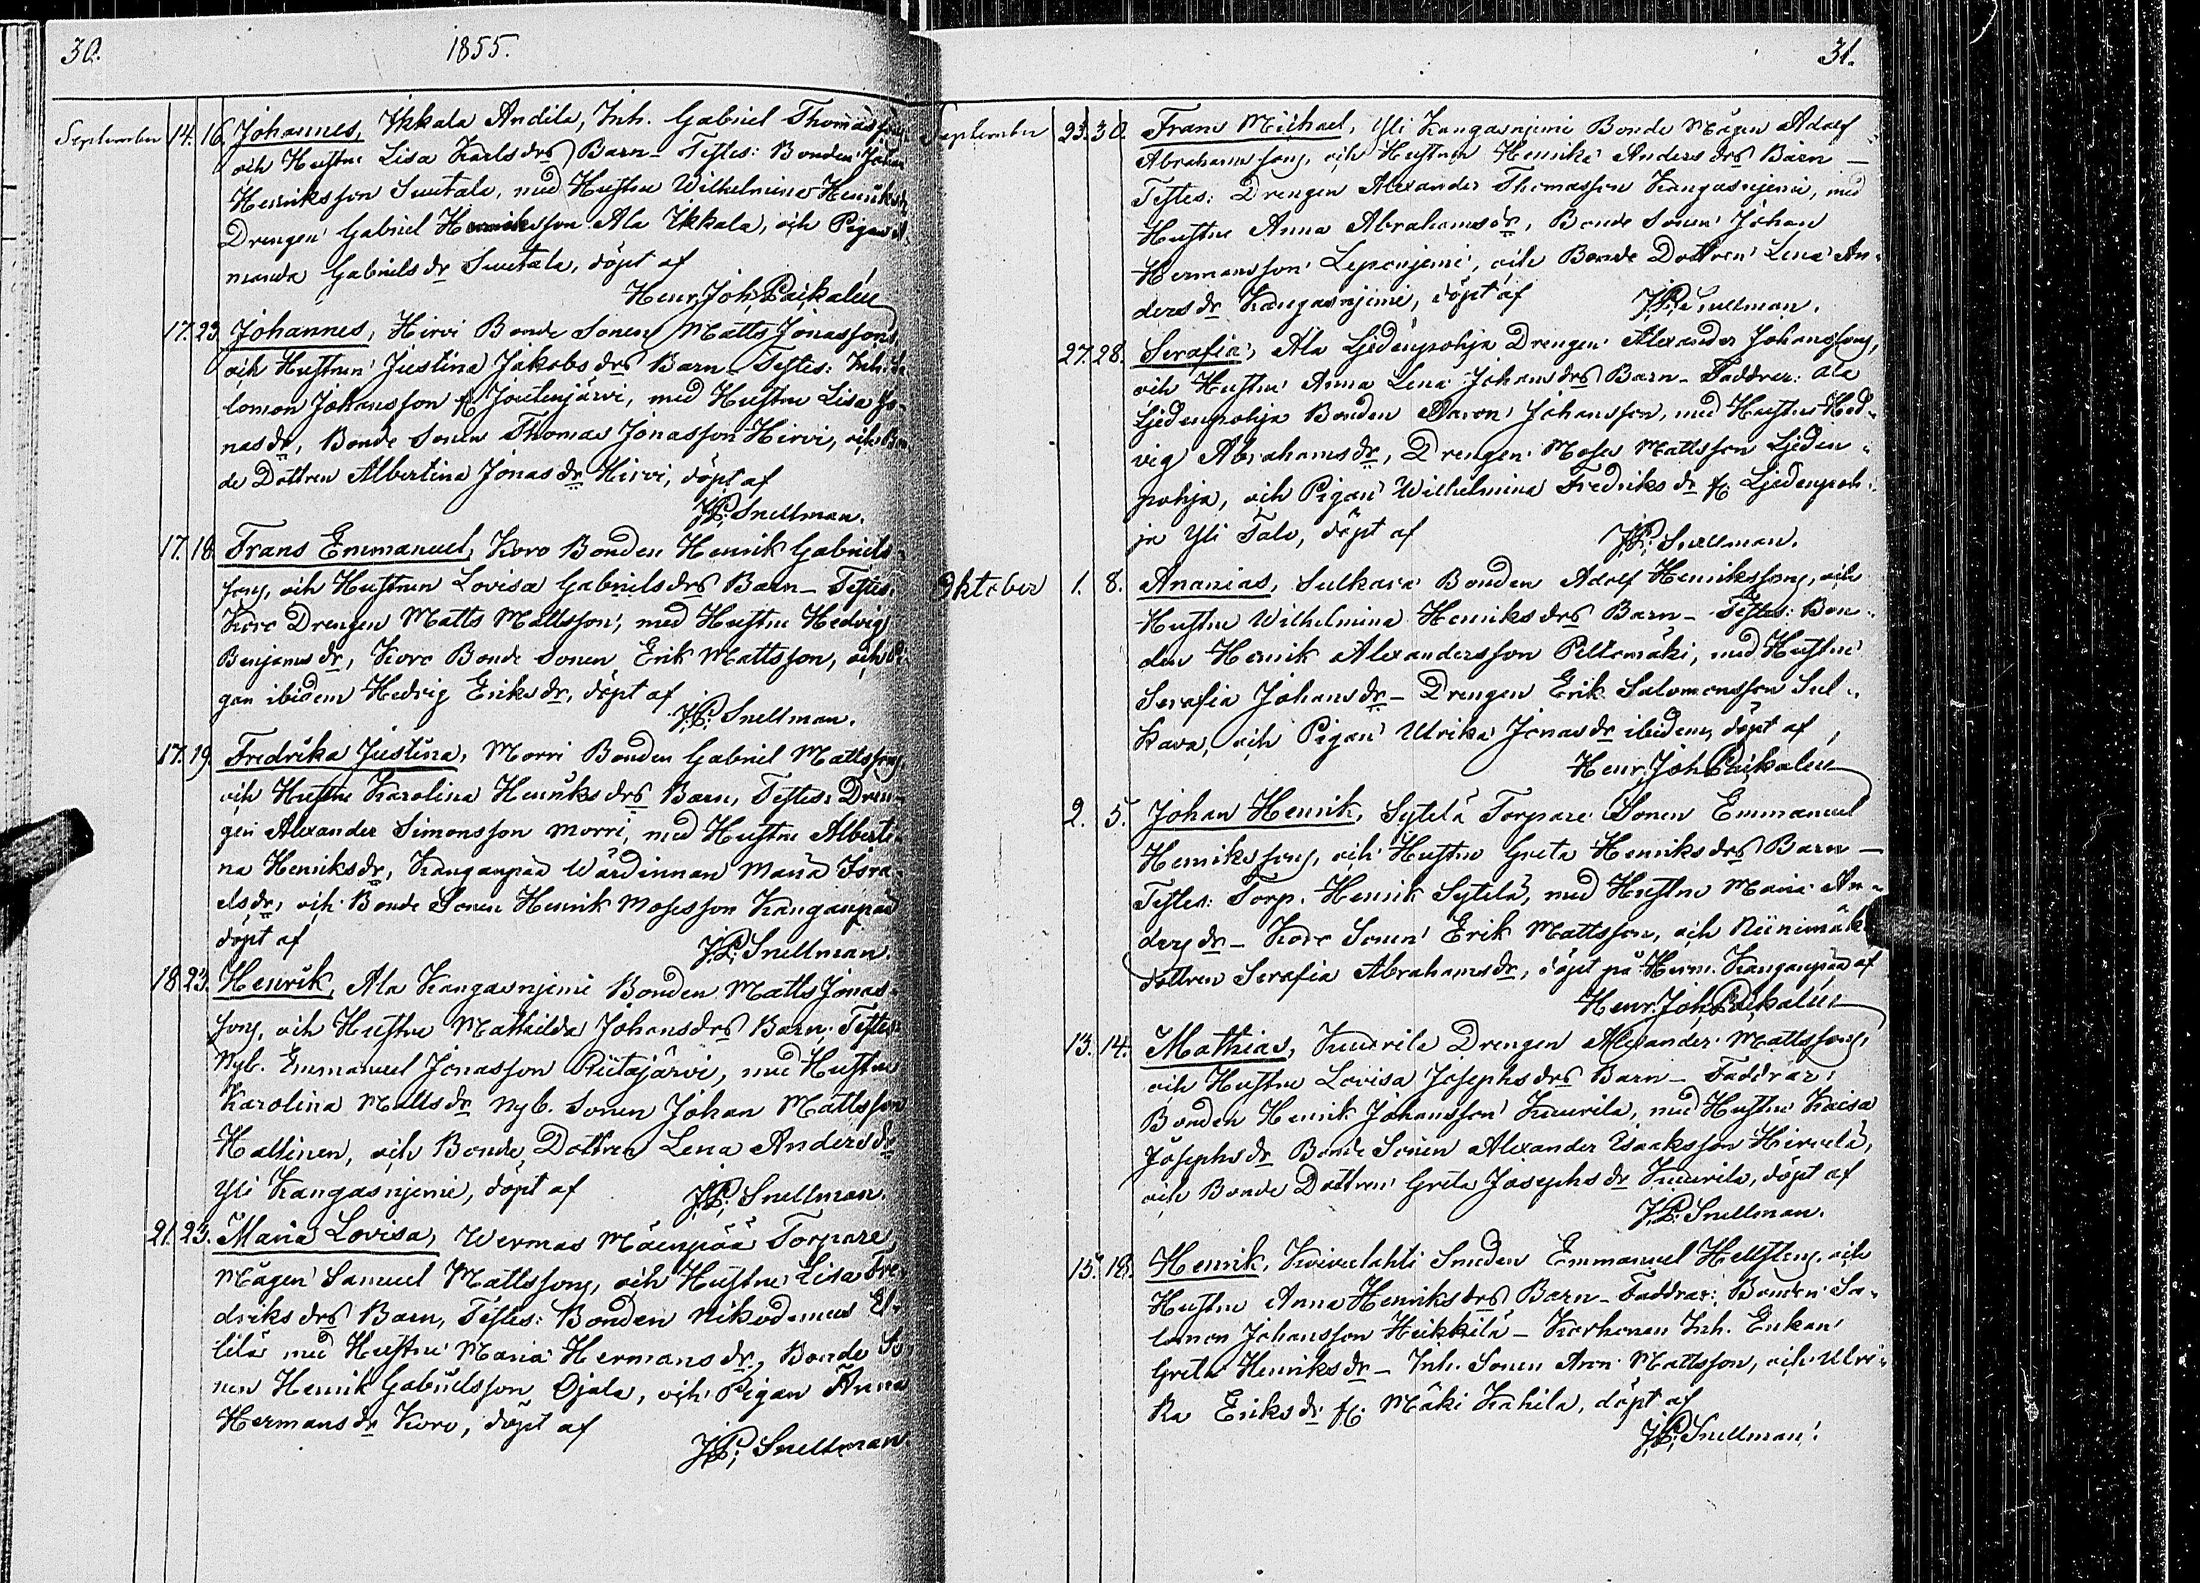 30.
1855.
September 14. 16. Johannes, Ikkala Andila, Inh. Gabriel Thomasson
och Hustru Lisa Karls drs Barn – Testes: Bonden Johan
Henriksson Suutala, med Hustru Wilhelmina Henriksdr
Drengen Gabriel Henriksson Ala Ikkala, och Pigan A-
manda Gabriels dr Suutala, döpt af
Henr. Joh. Paikalén
17. 23. Johannes, Hirvi Bonde Sonen Matts Jonassons
och Hustrun Justina Jakobs drs Barn – Testes: Inh. Sa-
lomon Johansson fr. Joutenjärvi, med Hustru Lisa Jo-
nas dr, Bonde Sonen Thomas Jonasson Hirvi, och Bon-
de Dottren Albertina Jonas dr Hirvi, döpt af
J.P. Snellman.
17. 18. Frans Emmanuel, Koro Bonden Henrik Gabriels-
sons, och Hustrun Lovisa Gabriels drs Barn – Testes:
Koro Drengen Matts Mattsson, med Hustru Hedvig
Benjams dr, Koro Bonde Sonen Erik Mattsson, och Pi-
gan ibidem Hedvig Eriks dr, döpt af
J.P. Snellman.
17. 19. Fredrika Justina, Morri Bonden Gabriel Mattssons,
och Hustru Karolina Henriks drs Barn, Testes: Dren-
gen Alexander Simonsson Morri, med Hustru Alberti-
na Henriks dr, Kanganpää Wärdinnan Maria Isra-
els dr, och Bonde Sonen Henrik Mosesson Kanganpää
döpt af
J.P. Snellman.
18. 23. Henrik, Ala Kangasnjemi Bonden Matts Jonas-
sons, och Hustru Mathilda Johans drs Barn, Testes:
Nyb. Emmanuel Jonasson Riitajärvi, med Hustru
Karolina Matts dr Nyb. Sonen Johan Mattsson
Hallinen, och Bonde Dottren Lena Anders dr
Yli Kangasnjemi, döpt af
J.P. Snellman.
21. 23. Maria Lovisa, Wermas Mäenpää Torpare
Mågen Samuel Mattssons, och Hustru Lisa Fre-
driks drs Barn, Testes: Bonden Nikodemus
med Hustru Maria Hermans dr, Bonde So-
nen Henrik Gabrielsson Ojala, och Pigan Anna
Hermans dr Koro, döpt af
J.P. Snellman.
31.
September 23. 30. Frans Michael, Yli Kangasnjemi Bonde Mågen Adolf
Abrahamssons, och Hustrun Henrika Anders drs Barn –
Testes: Drengen Alexander Thomasson Kangasnjemi, med
Hustru Anna Abrahams dr, Bonde Sonen Johan
Hermansson Lepenjemi, och Bonde Dottren Lena An-
ders dr Kangasnjemi, döpt af
J.P. Snellman.
27. 28. Serafia, Ala Ljedenpohja Drengen Alexander Johanssons,
och Hustru Anna Lena Johans drs Barn – Faddrar: Ala
Ljedenpohja Bonden Aaron Johansson, med Hustru Hed-
vig Abrahams dr, Drengen Moses Mattsson Ljeden-
pohja, och Pigan Wilhelmina Fredriks dr fr. Ljedenpoh-
ja Yli Talo, döpt af
J.P. Snellman.
Oktober 1. 8. Ananias, Sulkava Bonden Adolf Henrikssons, och
Hustru Wilhelmina Henriks drs Barn – Testes: Bon-
den Henrik Alexandersson Peltomäki, med Hustru
Serafia Johans dr – Drengen Erik Salomonsson Sul-
kava, och Pigan Ulrika Jonas dr ibidem, döpt af
Henr. Joh. Paikalén
2. 5. Johan Henrik, Sytelä Torpare Sonen Emmanuel
Henrikssons, och Hustru Greta Henriks drs Barn –
Testes: Torp. Henrik Sytelä, med Hustru Maria An-
ders dr – Koro Sonen Erik Mattsson, och Niinimäki
dottren Serafia Abrahams dr, döpt på Hem. Kanganpää af
Henr. Joh. Paikalén
13. 14. Mathias, Kuurila Drengen Alexander Mattssons,
och Hustru Lovisa Josephs drs Barn – Faddrar:
Bonden Henrik Johansson Kuurila, med Hustru Kaisa
Josephs dr Bonde Sonen Alexander Isaksson Hirvelä,
och Bonde Dottren Greta Josephs dr Kuurila, döpt af
J.P. Snellman.
15. 18. Henrik, Koivulahti Smeden Emmanuel Hellstens, och
Hustru Anna Henriks drs Barn – Faddrar: Bonden Sa-
lomon Johansson Heikkilä – Korhonen Inh. Enkan
Greta Henriks dr – Inh. Sonen Mattsson, och Ulri-
ka Eriks dr fr. Mäki Kahila, döpt af
J.P. Snellman.